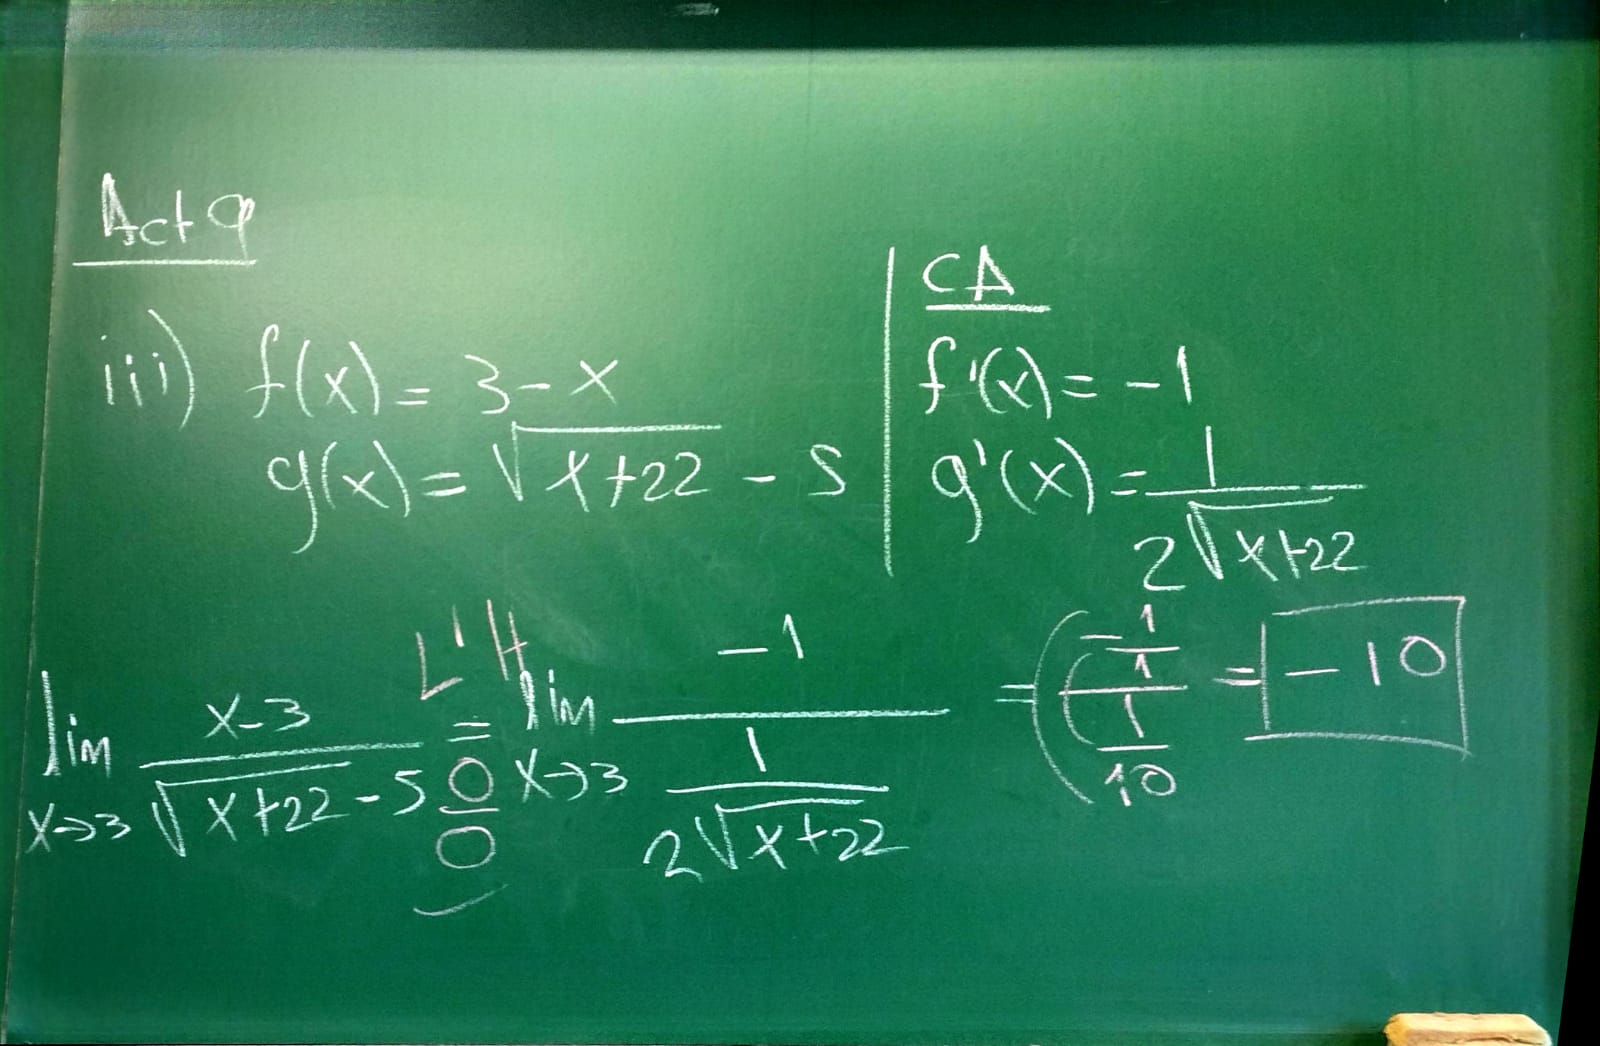 Act 9
iii) f(x) = 3 - x
g(x) = √(x+22) - 5
CA
f'(x) = -1
g'(x) = 1/(2√(x+22))
lim x→3 (x-3)/(√(x+22) - 5) L'H = 0/0 lim x→3 (-1)/(1/(2√(x+22))) = ((-1/1)/(1/10)) = -10